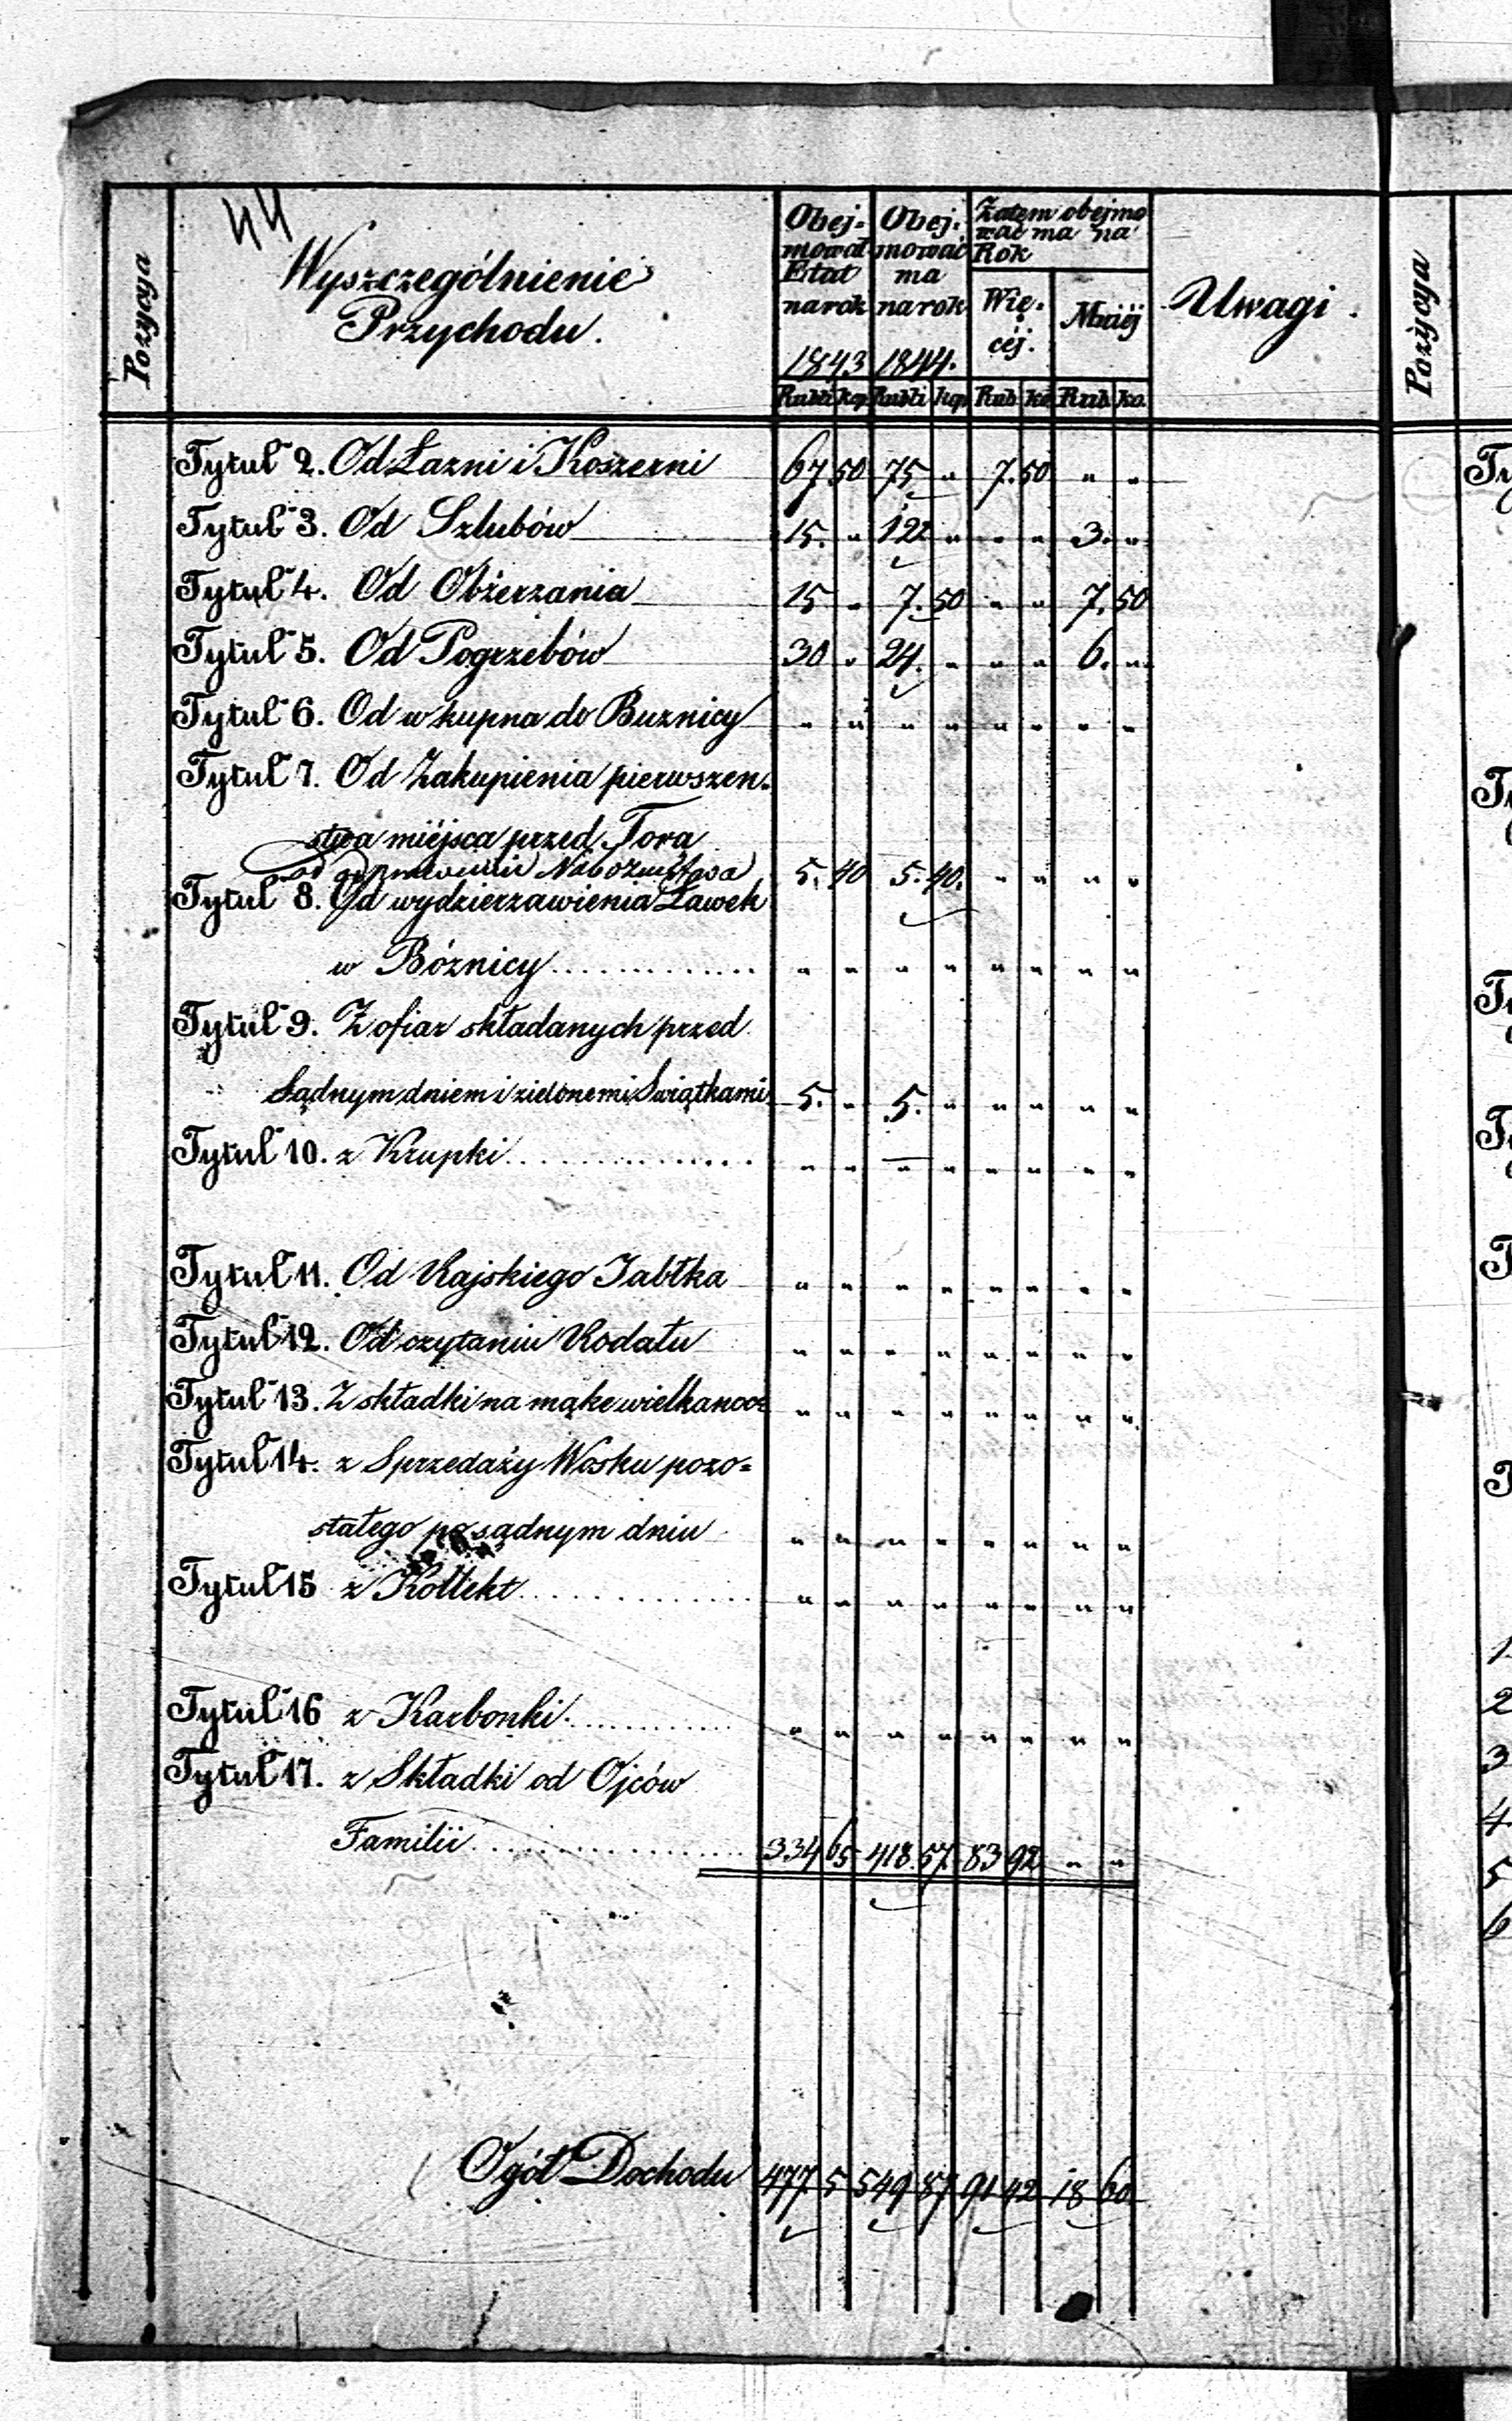 44
Pozycya
Wyszczególnienie
Przychodu.
Obej-
mował
Etat
na rok
1843
Obej-
mować
ma
na rok
1844.
Zatem obejmo
wać ma na
Rok
Wię-
céj.
Mniéj
Uwagi.
Pozycya
Rubli kop Rubli kop Rub ko Rub ko.
Tytuł 2. Od Łazni i Koszerni 67 50 75 " 7. 50 " "
Tytuł 3. Od Szlubów 15. " 12 " " " 3. "
Tytuł 4. Od Obżerzania 15 " 7. 50 " " 7. 50
Tytuł 5. Od Pogrzebów 30 " 24. " " " 6. "
Tytuł 6. Od wkupna do Buznicy " " " " " " " "
Tytuł 7. Od Zakupienia pierwszen-
stwa miéjsca przed Tora
od Nabożeństwa 5. 40 5. 40. " " " "
Tytuł 8. Od wydzierzawienia Ławek
w Bóznicy............. " " " " " " " "
Tytuł 9. Z ofiar składanych przed
Sądnym dniem i zielonemi Swiątkami 5. " 5. " " " " "
Tytuł 10. z Krupki............... " " — " " " " "
Tytuł 11. Od Rajskiego Jabłka " " " " " " " "
Tytuł 12. Od czytaniu Rodału " " " " " " " "
Tytuł 13. Z składki na mąke wielkanoc " " " " " " " "
Tytuł 14. z Sprzedaży Wosku pozo=
stałego po sądnym dniu " " " " " " " "
Tytuł 15 z Kollekt............. " " " " " " " "
Tytuł 16 z Karbonki............ " " " " " " " "
Tytuł 17. z Składki od Ojców
Familii................. 334 65 418. 57. 83 92 " "
Ogół Dochodu 477. 5 549 87 91 42 18 60
1
2
3
4
5
6